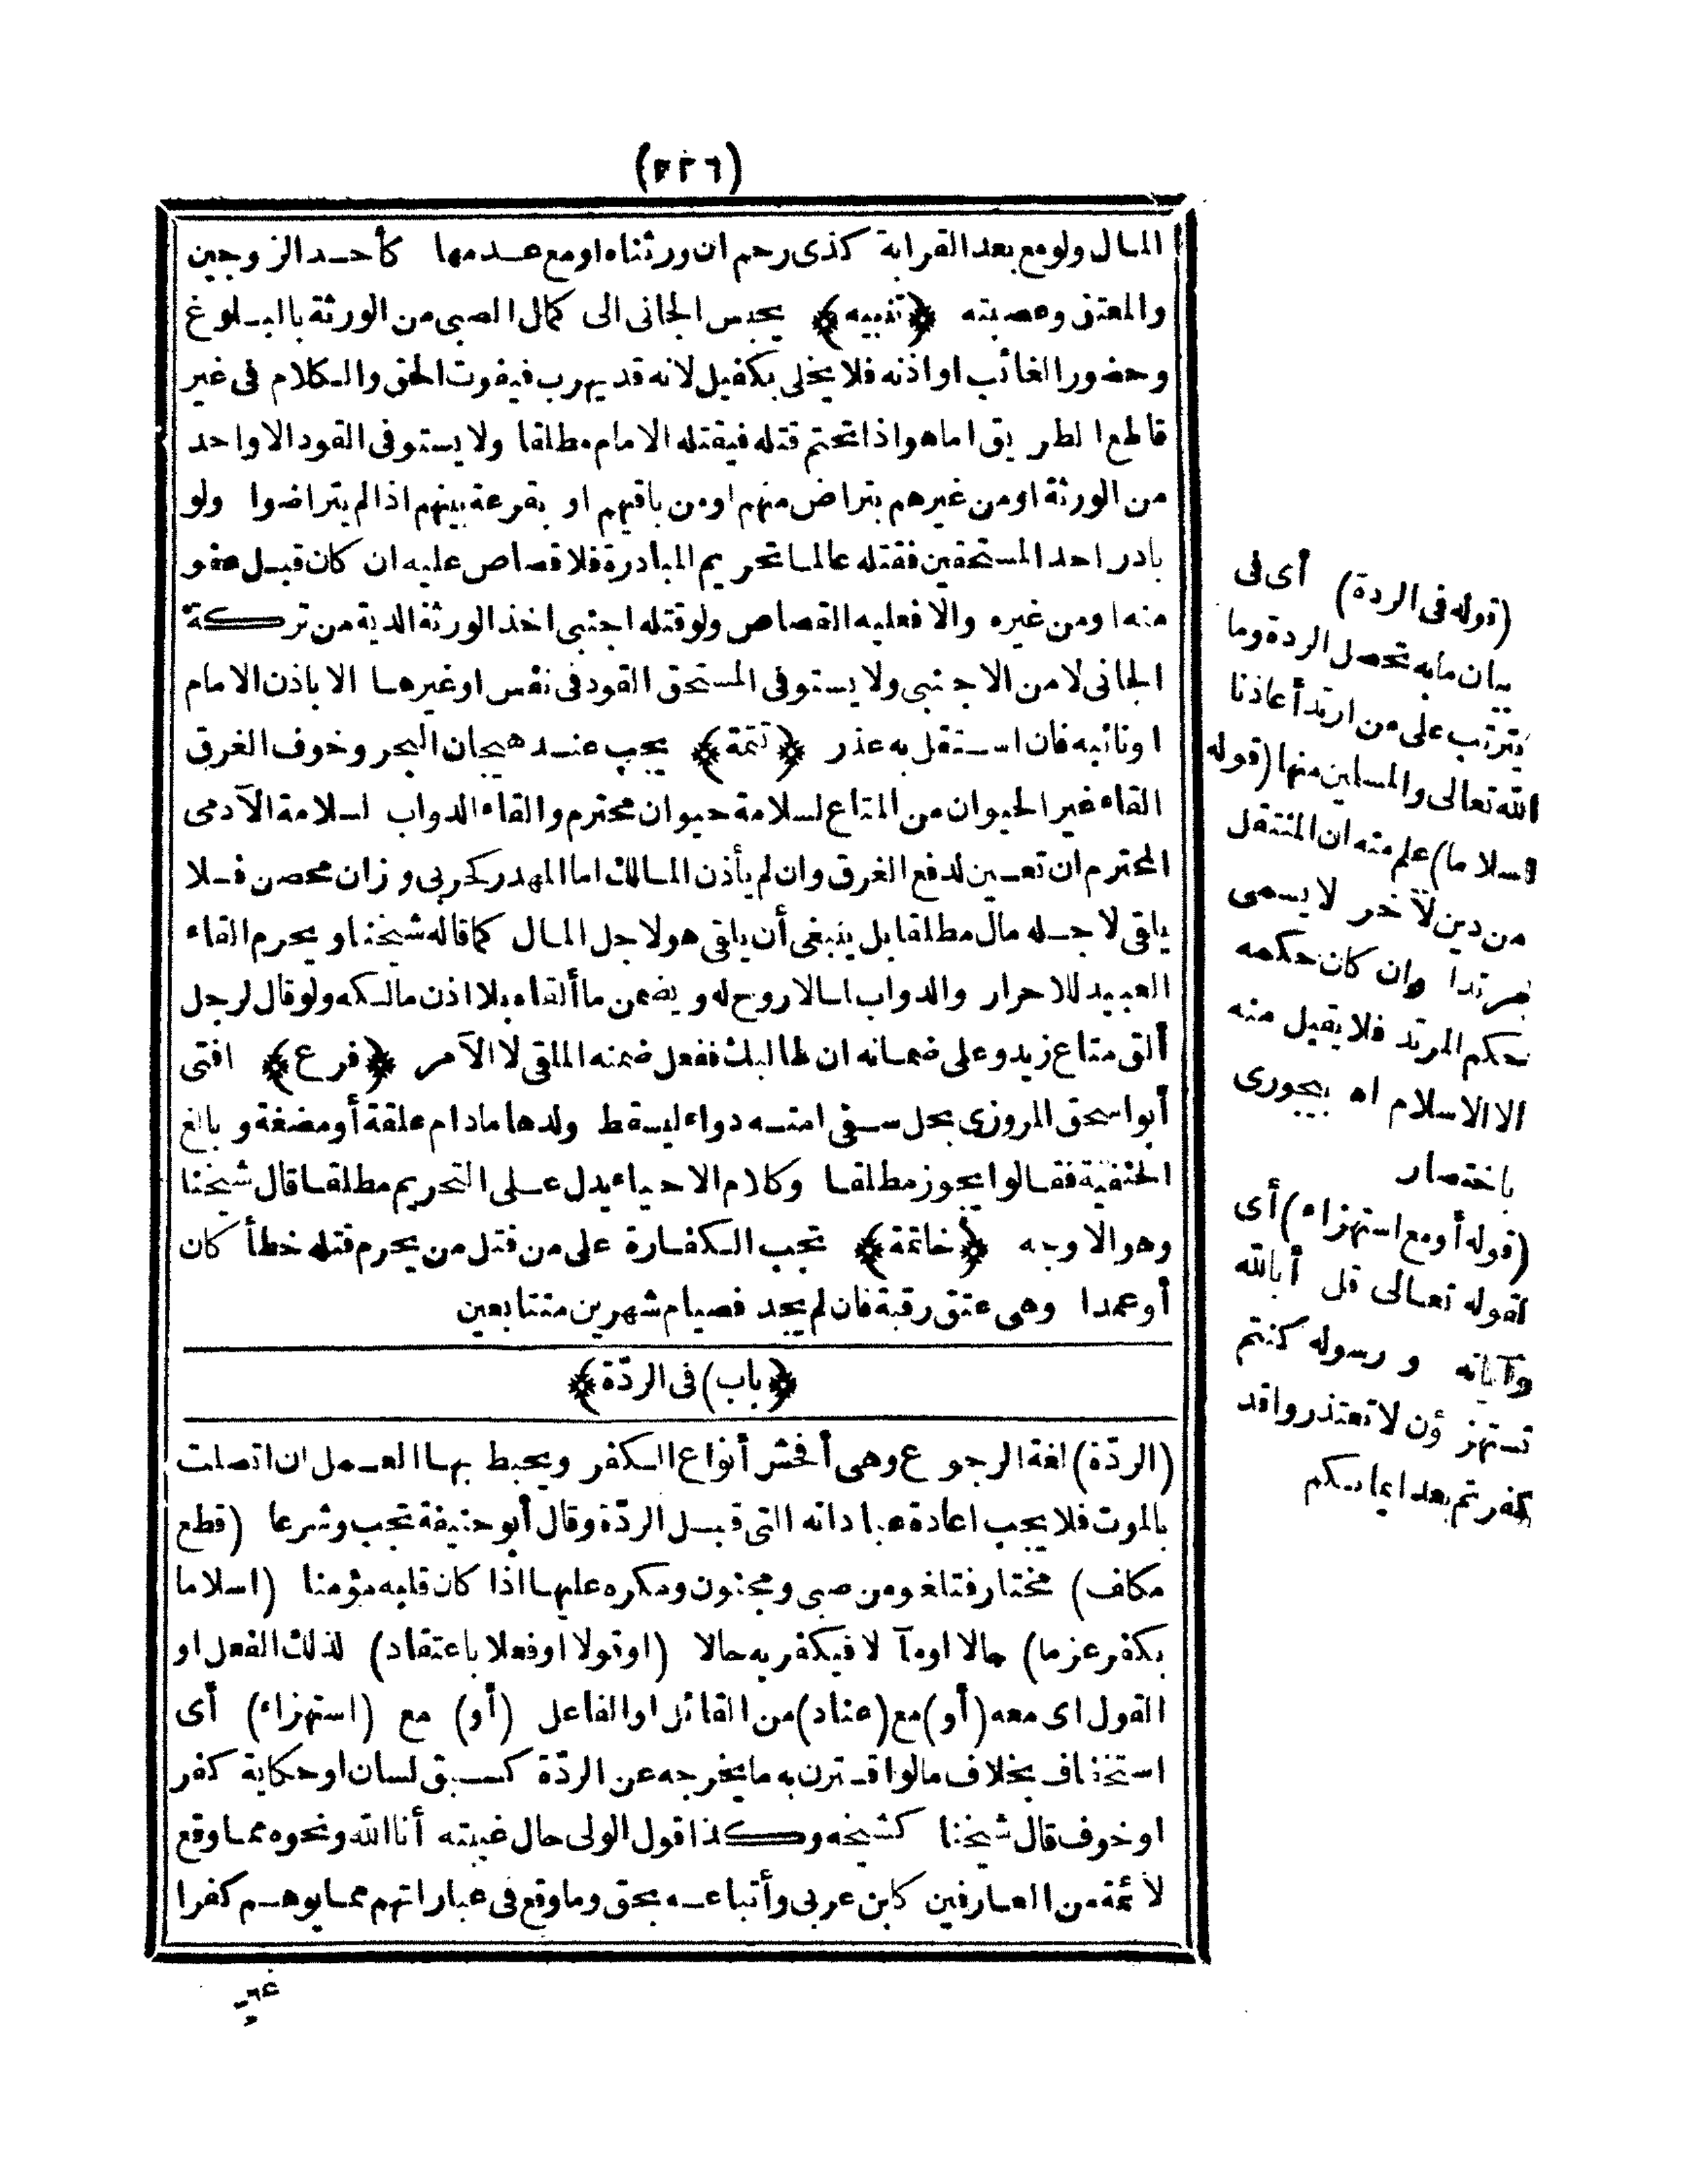 المال ولو مع بعد القرابة كذى رحم ان ورثناه او مع عدمها كأحد الزوجين
والمعتق وعصبته ﴿تنبيه﴾ يحبس الجانى الى كمال الصبى من الورثة بالبلوغ
وحضور الغائب او اذنه فلا يخلى بكفيل لانه قد يهرب فيفوت الحق والكلام فى غير
قاطع الطريق اما هو اذا تحتم قتله فيقتله الامام مطلقا ولا يستوفى القود الا واحد
من الورثة او من غيرهم بتراض منهم او من باقيهم او بقرعة بينهم اذا لم يتراضوا ولو
بادر احد المستحقين فقتله عالما تحريم المبادرة فلا قصاص عليه ان كان قبل عفو
منه او من غيره والا فعليه القصاص ولو قتله اجنبى اخذ الورثة الدية من تركة
الجانى لا من الاجنبى ولا يستوفى المستحق القود فى نفس او غيرها الا باذن الامام
او نائبه فان استقل به عذر ﴿تتمة﴾ يجب عند هيجان البحر وخوف الغرق
القاء غير الحيوان من المتاع لسلامة حيوان محترم والقاء الدواب لسلامة الآدمى
المحترم ان تعين لدفع الغرق وان لم يأذن المالك اما المهدر كحربى وزان محصن فلا
يلقى لاجله مال مطلقا بل ينبغى أن يلقى هو لاجل المال كما قاله شيخنا ويحرم القاء
العبيد للاحرار والدواب لما لا روح له ويضمن ما ألقاه بلا اذن مالكه ولو قال لرجل
ألق متاع زيد وعلى ضمانه ان طالبك ففعل ضمنه الملقى لا الآمر ﴿فرع﴾ افتى
أبو اسحق المروزى بحل سقى امته دواء ليسقط ولدها مادام علقة أو مضغة وبالغ
الحنفية فقالوا يجوز مطلقا وكلام الاحياء يدل على التحريم مطلقا قال شيخنا
وهو الاوجه ﴿خاتمة﴾ تجب الكفارة على من قتل من يحرم قتله خطأ كان
أو عمدا وهى عتق رقبة فان لم يجد فصيام شهرين متتابعين
﴿باب) فى الردّة﴾
(الردّة) لغة الرجوع وهى أفحش أنواع الكفر ويحبط بها العمل ان اتصلت
بالموت فلا يجب اعادة عباداته التى قبل الردّة وقال أبو حنيفة تجب وشرعا (قطع
مكلف) مختار فتلغو من صبى ومجنون ومكره عليها اذا كان قلبه مؤمنا (اسلاما
بكفر عزما) حالا او مآلا فيكفر به حالا (او قولا او فعلا باعتقاد) لذلك الفعل او
القول اى معه (أو) مع (عناد) من القائل او الفاعل (أو) مع (استهزاء) أى
استخفاف بخلاف مالو اقترن به ما يخرجه عن الردّة كسبق لسان او حكاية كفر
او خوف قال شيخنا كشيخه وكذا قول الولى حال غيبته أنا الله ونحوه مما وقع
لأئمة من العارفين كابن عربى وأتباعه بحق وما وقع فى عباراتهم مما يوهم كفرا
غير
(قوله فى الردة) أى فى
بيان ما به تحصل الردة وما
يترتب على من ارتد أعاذنا
الله تعالى والمسلمين منها (قوله
اسلاما) علم منه ان المنتقل
من دين لآخر لا يسمى
مرتدا وان كان حكمه
حكم المرتد فلا يقبل منه
الا الاسلام اه بيجورى
باختصار
(قوله أو مع استهزاء) أى
لقوله تعالى قل أبالله
وآياته ورسوله كنتم
تستهزؤن لا تعتذروا قد
كفرتم بعد ايمانكم